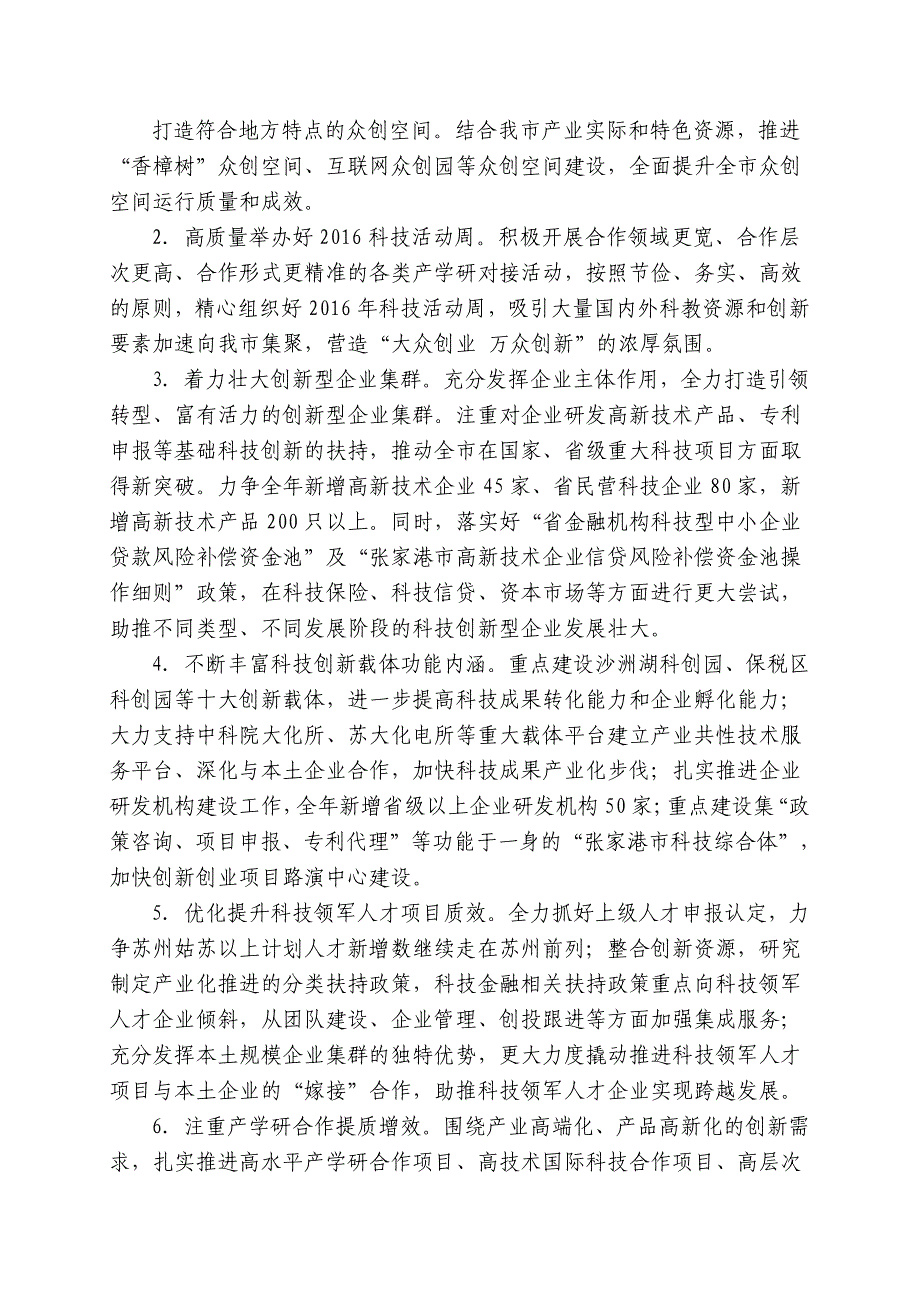 打造符合地方特点的众创空间。结合我市产业实际和特色资源，推进
“香樟树”众创空间、互联网众创园等众创空间建设，全面提升全市众创
空间运行质量和成效。
2. 高质量举办好 2016 科技活动周。积极开展合作领域更宽、合作层
次更高、合作形式更精准的各类产学研对接活动，按照节俭、务实、高效
的原则，精心组织好 2016 年科技活动周，吸引大量国内外科教资源和创新
要素加速向我市集聚，营造“大众创业 万众创新”的浓厚氛围。
3. 着力壮大创新型企业集群。充分发挥企业主体作用，全力打造引领
转型、富有活力的创新型企业集群。注重对企业研发高新技术产品、专利
申报等基础科技创新的扶持，推动全市在国家、省级重大科技项目方面取
得新突破。力争全年新增高新技术企业 45 家、省民营科技企业 80 家，新
增高新技术产品 200 只以上。同时，落实好“省金融机构科技型中小企业
贷款风险补偿资金池”及“张家港市高新技术企业信贷风险补偿资金池操
作细则”政策，在科技保险、科技信贷、资本市场等方面进行更大尝试，
助推不同类型、不同发展阶段的科技创新型企业发展壮大。
4. 不断丰富科技创新载体功能内涵。重点建设沙洲湖科创园、保税区
科创园等十大创新载体，进一步提高科技成果转化能力和企业孵化能力；
大力支持中科院大化所、苏大化电所等重大载体平台建立产业共性技术服
务平台、深化与本土企业合作，加快科技成果产业化步伐；扎实推进企业
研发机构建设工作，全年新增省级以上企业研发机构 50 家；重点建设集“政
策咨询、项目申报、专利代理”等功能于一身的“张家港市科技综合体”，
加快创新创业项目路演中心建设。
5. 优化提升科技领军人才项目质效。全力抓好上级人才申报认定，力
争苏州姑苏以上计划人才新增数继续走在苏州前列；整合创新资源，研究
制定产业化推进的分类扶持政策，科技金融相关扶持政策重点向科技领军
人才企业倾斜，从团队建设、企业管理、创投跟进等方面加强集成服务；
充分发挥本土规模企业集群的独特优势，更大力度撬动推进科技领军人才
项目与本土企业的“嫁接”合作，助推科技领军人才企业实现跨越发展。
6. 注重产学研合作提质增效。围绕产业高端化、产品高新化的创新需
求，扎实推进高水平产学研合作项目、高技术国际科技合作项目、高层次